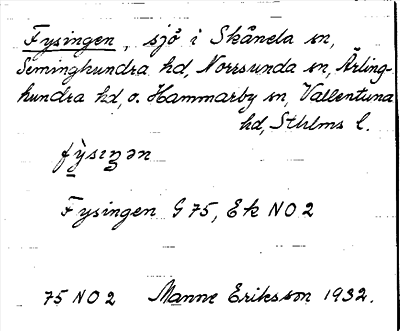 Fysingen, sjö i Skånela sn,
Seminghundra hd, Norrsunda sn, Ärling-
hundra hd, o. Hammarby sn, Vallentuna
hd, Sthlms l.
fỳsiŋən
Fysingen G 75, Ek NO 2
75 NO 2 Manne Eriksson 1932.